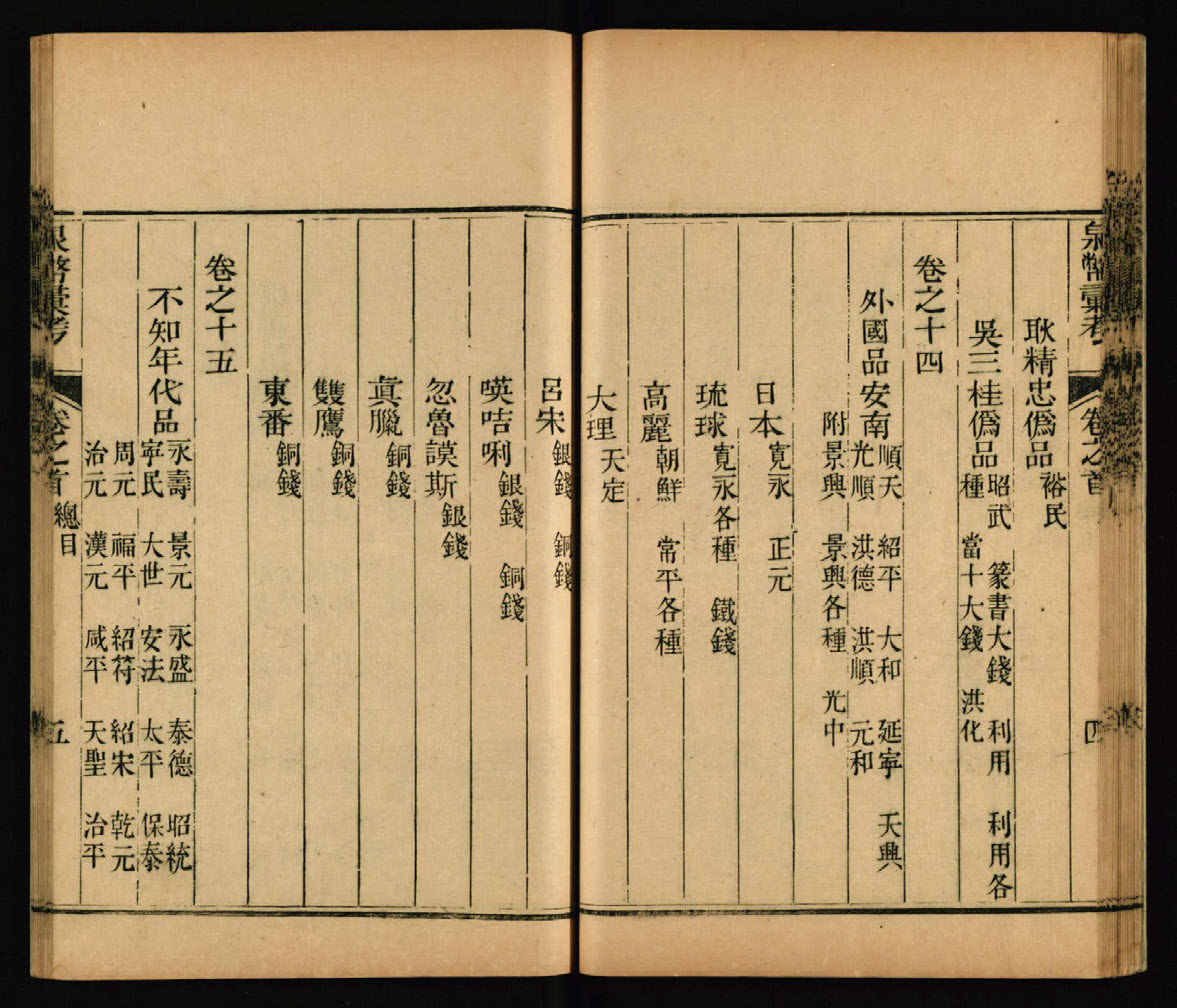 泉幣彙考 卷之首 四
耿精忠僞品 裕民
吳三桂僞品 昭武 篆書大錢 利用 利用各
種 當十大錢 洪化
卷之十四
外國品安南 順天 紹平 大和 延寧 天興
光順 洪德 洪順 元和
附景興 景興各種 光中
日本 寛永 正元
琉球 寛永各種 鐵錢
高麗 朝鮮 常平各種
大理 天定
呂宋 銀錢 銅錢
𠸄咭唎 銀錢 銅錢
忽魯謨斯 銀錢
真臘 銅錢
雙鷹 銅錢
東番 銅錢
卷之十五
不知年代品 永壽 景元 永盛 泰德 昭統
寧民 大世 安法 太平 保泰
周元 福平 紹符 紹宋 乾元
治元 漢元 咸平 天聖 治平
泉幣彙考 卷之首 總目 五